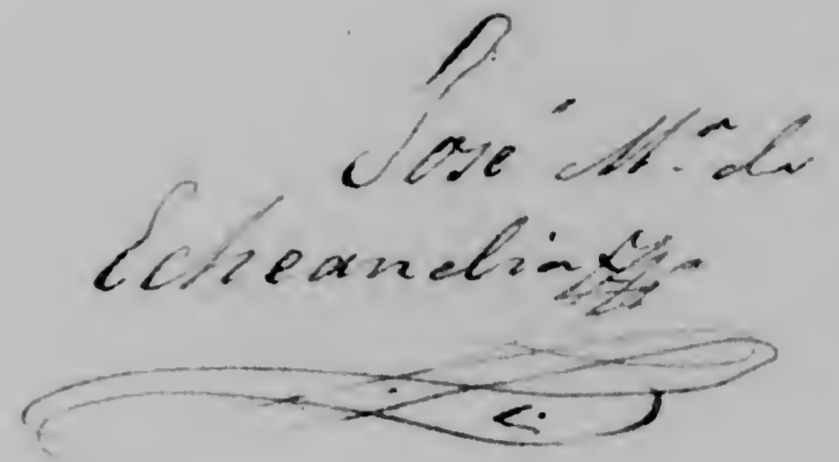 José M.ª de
Echeandia